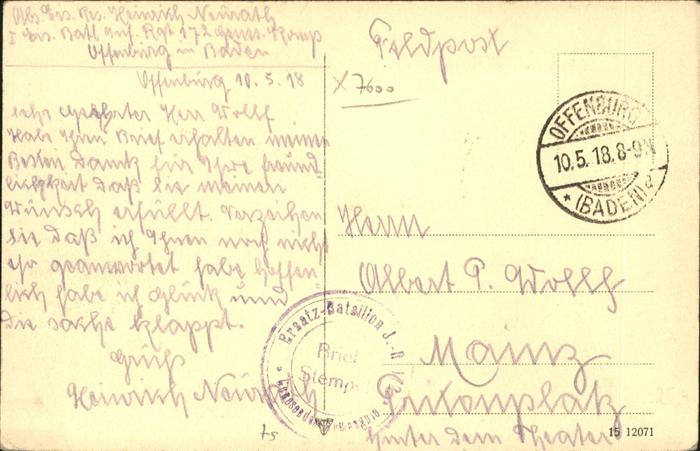 Abs Ers. Res. Heinrich Neurath
I Ers. Batl Inf. Rgt 172 Genes. Komp
Offenburg in Baden
Feldpost
Offenburg 10.5.18
X 7600
sehr geehrter Herr Wolff
Habe Ihren Brief erhalten meine
Besten Dank für Ihre freund
lichkeit daß Sie meinen
Wunsch erfüllt. Verzeihen
Sie daß ich Ihnen noch nicht
geantwortet habe hoffen
lich habe ich Glück und
die sache klappt.
Grüß
Heinrich Neurath
OFFENBURG
10.5.18.8-9V
* (BADEN) a
Herrn
Albert P. Wolff
Mainz
Tritonplatz
hinter dem Theater
Ersatz-Bataillon J.-R. 172
Brief
Stempel
15 12071